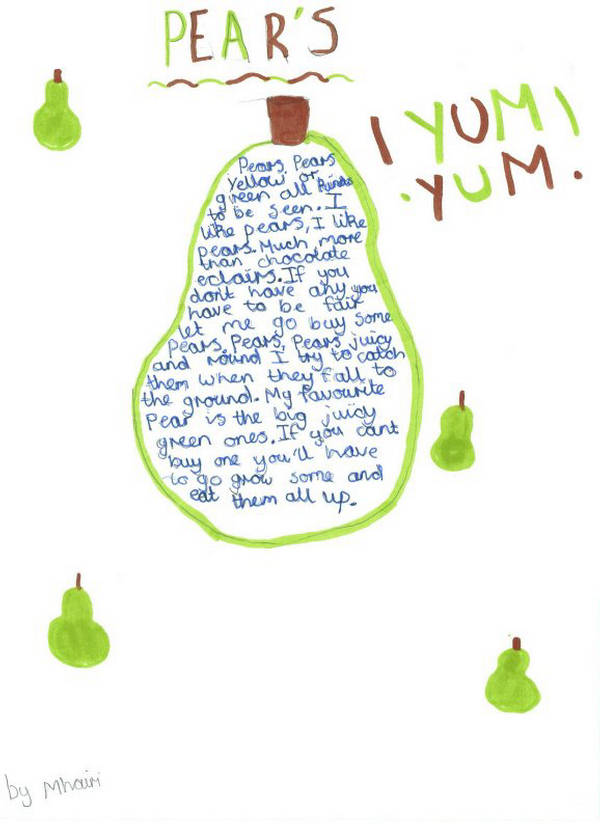 PEAR'S
! YUM !
.YUM.
Pears, Pears
Yellow or
green all kinds
to be seen. I
like pears, I like
pears. Much more
than chocolate
eclairs. If you
dont have any you
have to be fair
let me go buy some
Pears, Pears, Pears juicy
and round I try to catch
them when they fall to
the ground. My favourite
Pear is the big juicy
green ones. If you cant
buy one you'll have
to go grow some and
eat them all up.
by Mhairi